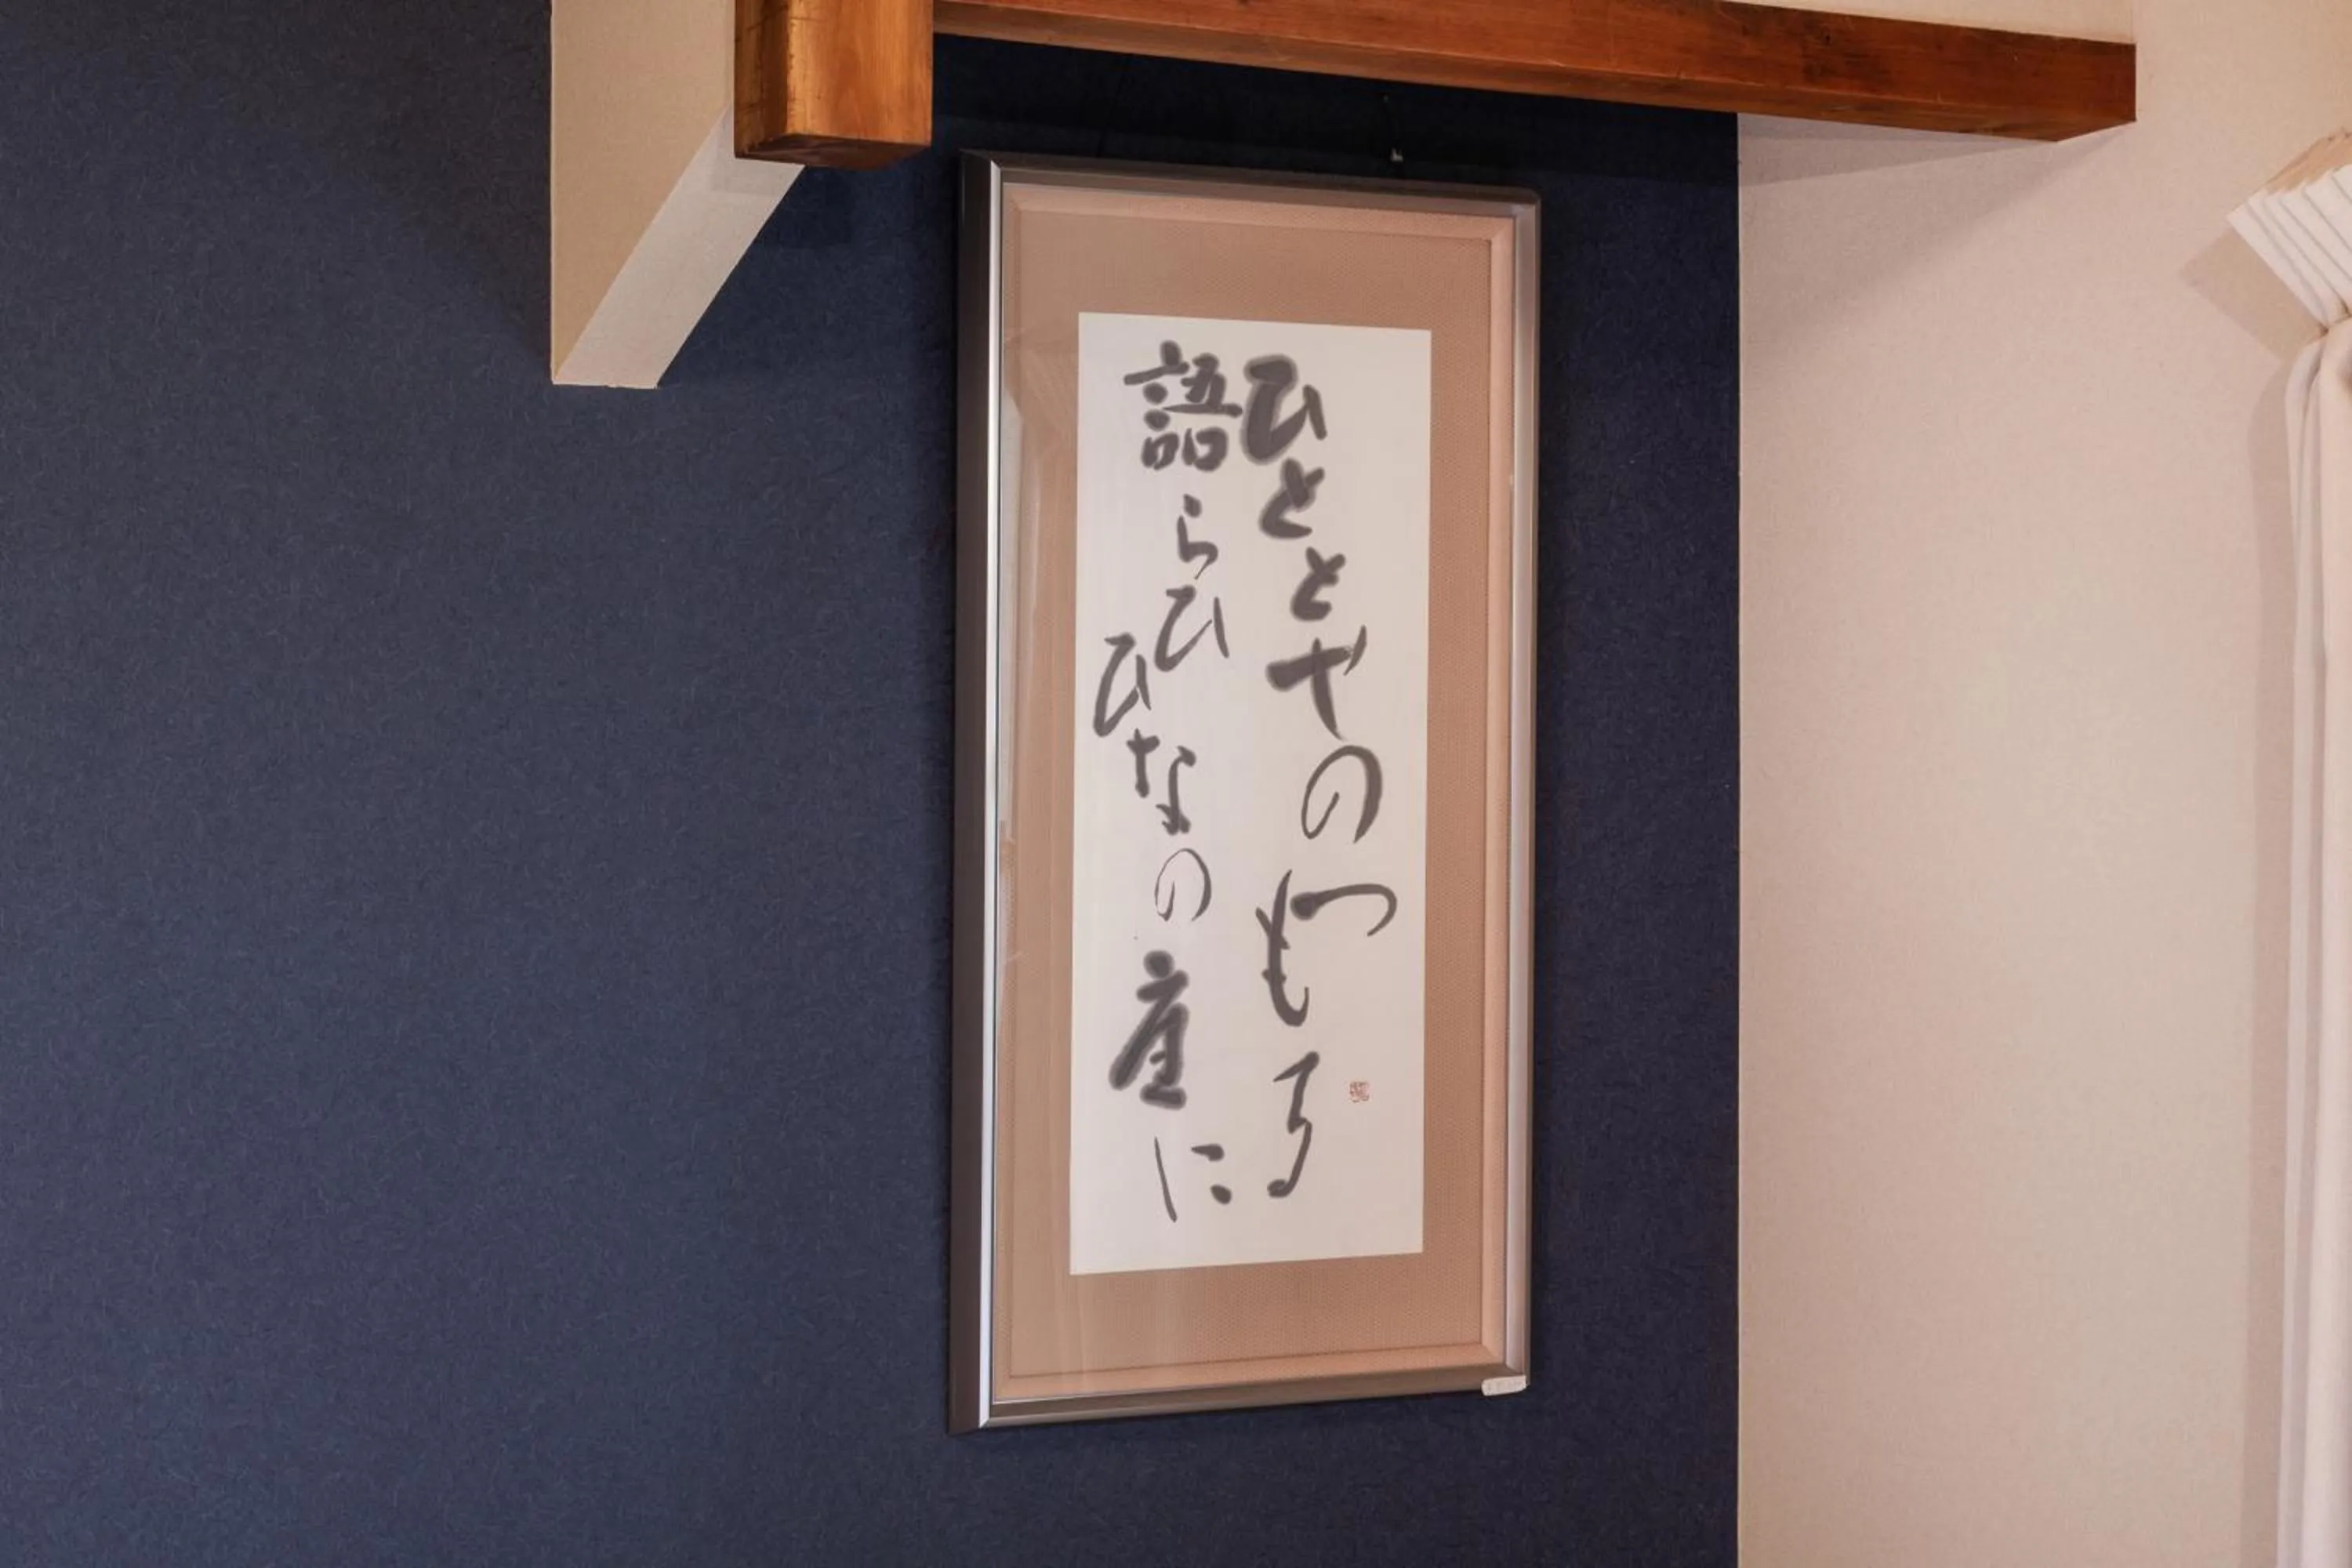 ひととせのつもる
語らひひなの座に